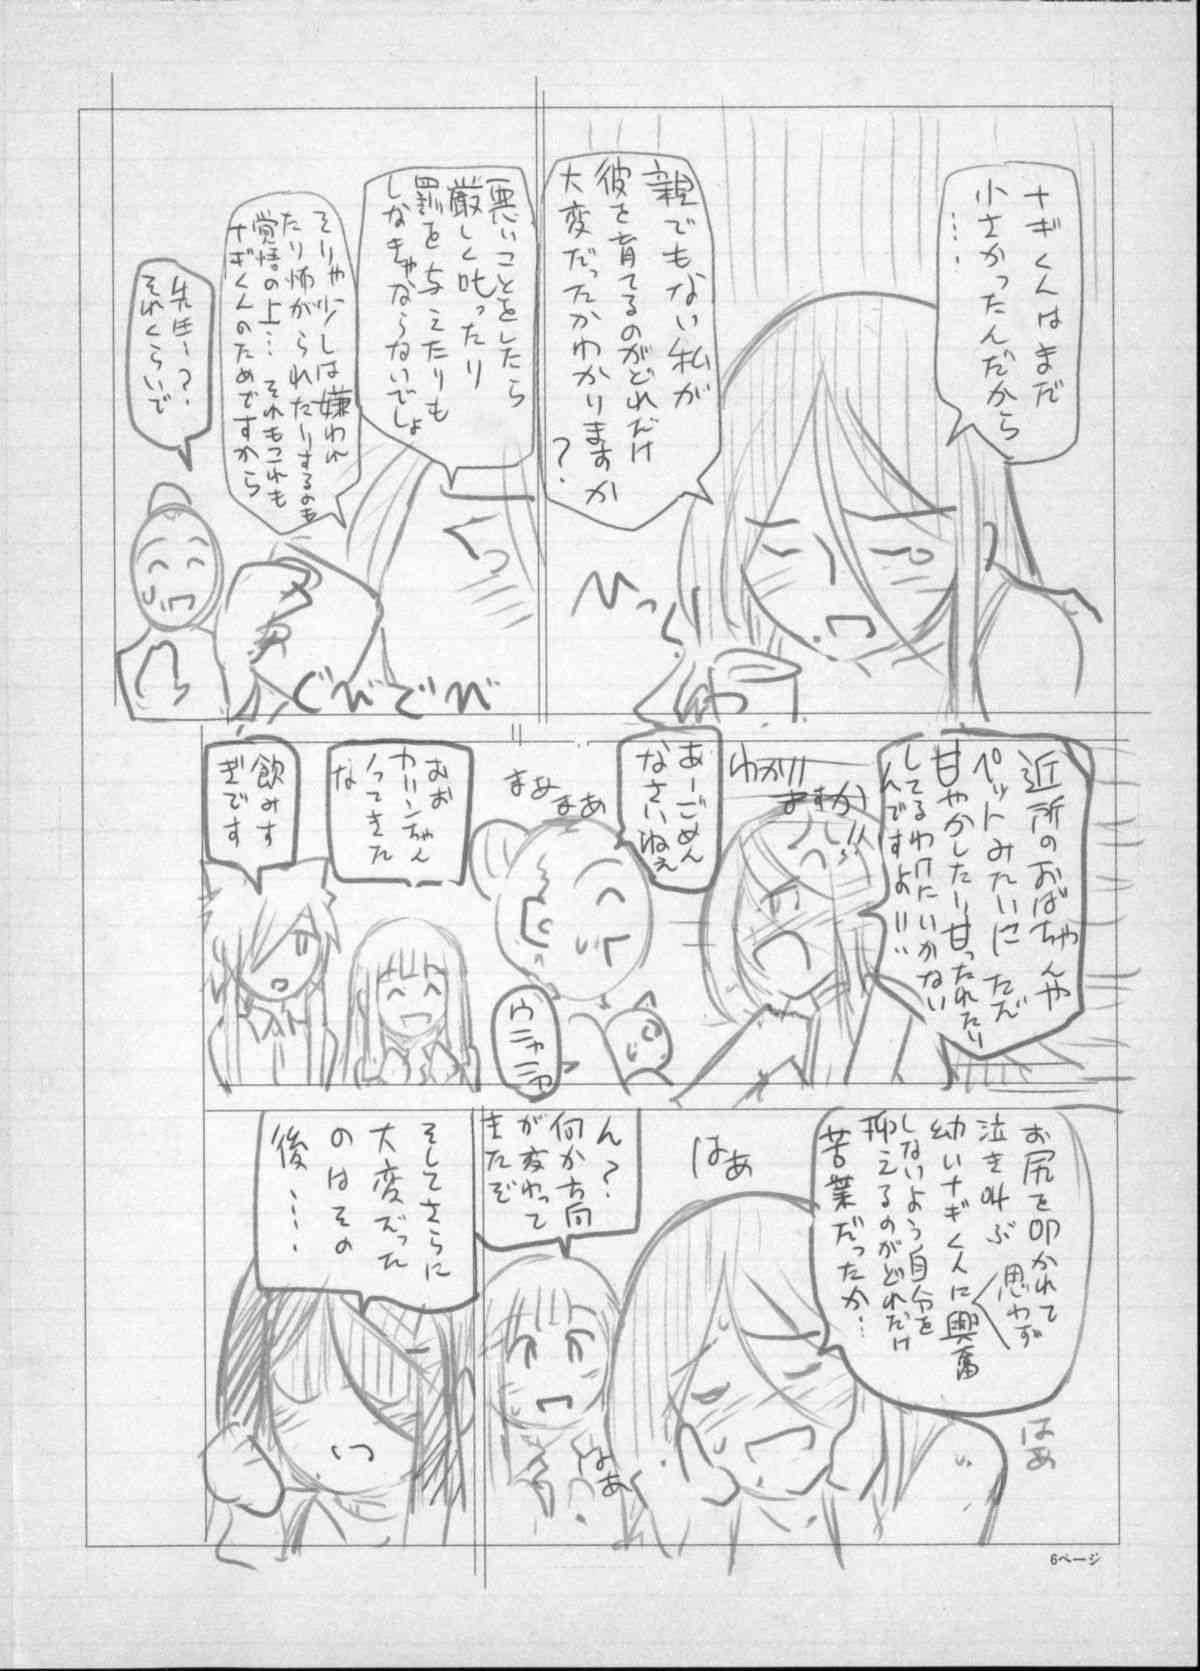 ナギくんはまだ
小さかったんだから
……
親でもない私が
彼を育てるのがどれだけ
大変だったかわかりますか
?
ひっ
悪いことをしたら
厳しく叱ったり
罰を与えたりも
しなきゃならないでしょ
そりゃ少しは嫌われ
たり怖がられたりするのも
覚悟の上… それもこれも
ナギくんのためですから
先生ー?
それくらいで
ぐびぐび
近所のおばちゃんや
ペットみたいにただ
甘やかしたり甘ったれたり
してるわけにいかない
んですよ!!
わかり
ますか!!
あーごめん
なさいねぇ
まぁまぁ
ウニャニャ
おお
カリンちゃん
ノッてきた
な
飲みす
ぎです
はぁ
はぁ
はぁ
ん?
何か方向
が変わって
きたぞ
そしてさらに
大変だった
のはその
後……
6ページ